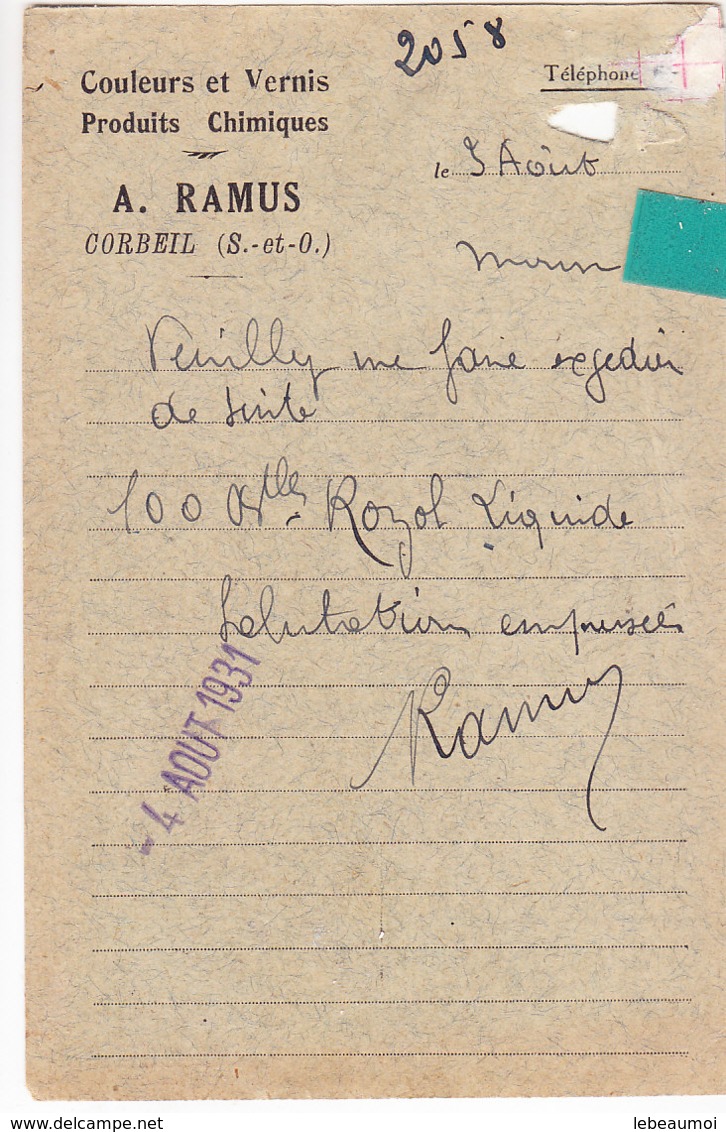 2058
Couleurs et Vernis
Produits Chimiques
Téléphone
A. RAMUS
CORBEIL (S.-et-O.)
le 3 Août
Veuillez me faire expédier
de suite
100 Btles Rozol Liquide
Salutations empressées
Ramus
-4 AOUT 1931
delcampe.net
lebeaumoi